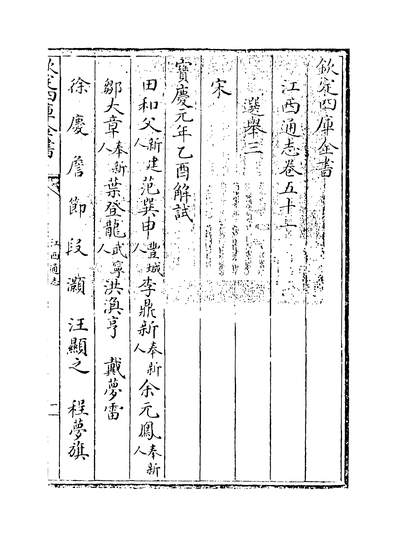 欽定四庫全書
江西通志卷五十一
選舉三
宋
寶慶元年乙酉解試
田和父新建人范巽申豐城人李鼎新奉新人余元鳳奉新人
鄒大章奉新人葉登龍武寧人洪渙亨 戴夢雷
徐慶詹 節段 灝 汪顯之 程夢旗
欽定四庫全書
江西通志